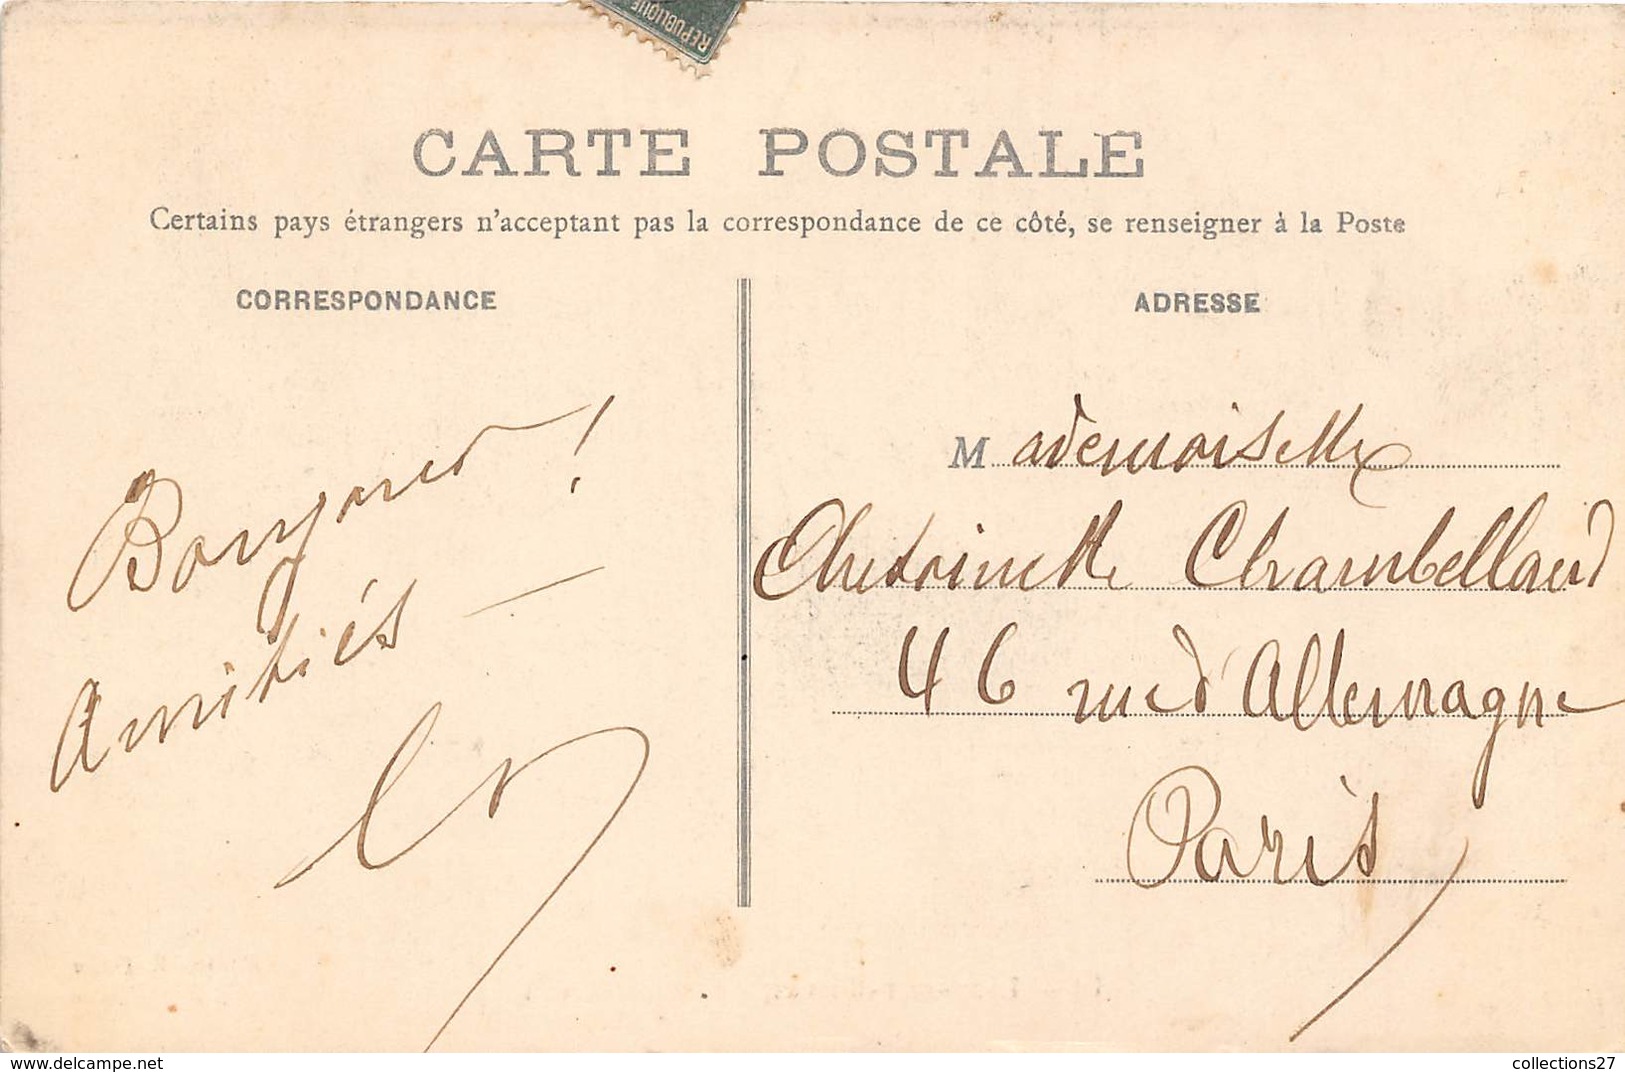 REPUBLIQUE
CARTE POSTALE
Certains pays étrangers n'acceptant pas la correspondance de ce côté, se renseigner à la Poste
CORRESPONDANCE
Amitiés
ADRESSE
Mademoiselle
Antoinette Chambelland
46 rue d'Allemagne
Paris
www.delcampe.net
collections27